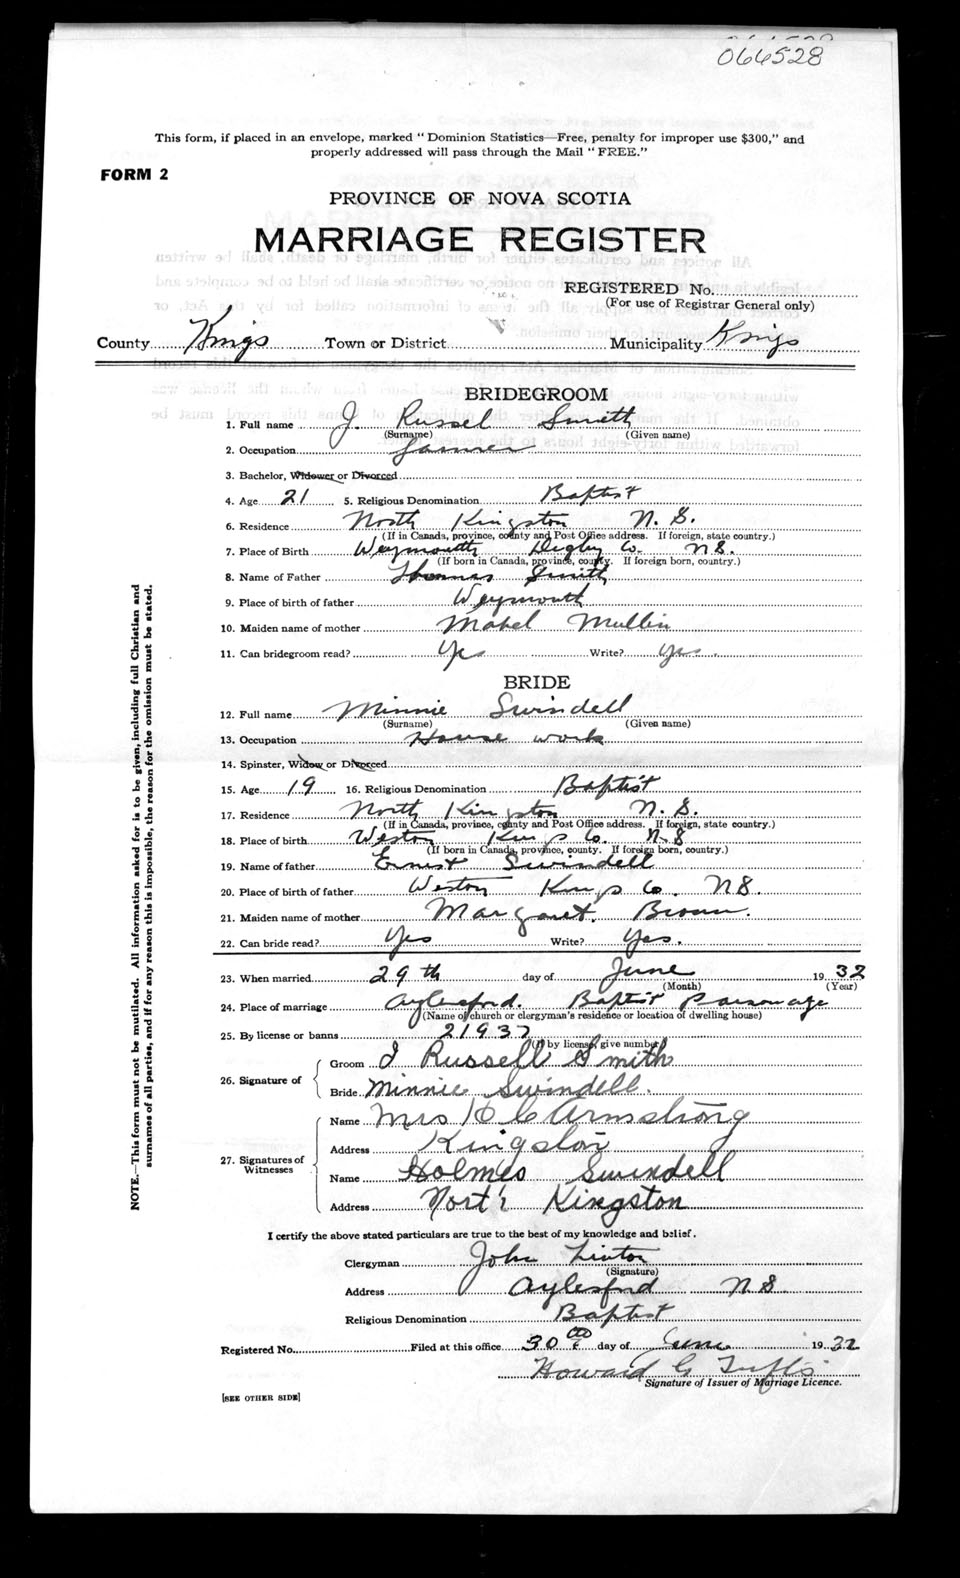 066528
This form, if placed in an envelope, marked "Dominion Statistics—Free, penalty for improper use $300," and
properly addressed will pass through the Mail "FREE."
FORM 2
PROVINCE OF NOVA SCOTIA
MARRIAGE REGISTER
REGISTERED No.
(For use of Registrar General only)
County Kings Town or District Municipality Kings
BRIDEGROOM
1. Full name J. Russel Smith
(Surname) (Given name)
2. Occupation Farmer
3. Bachelor, Widower or Divorced
4. Age 21 5. Religious Denomination Baptist
6. Residence North Kingston N. S.
(If in Canada, province, county and Post Office address. If foreign, state country.)
7. Place of Birth Weymouth Digby Co. N S.
(If born in Canada, province, county. If foreign born, country.)
8. Name of Father Thomas Smith
9. Place of birth of father Weymouth
10. Maiden name of mother Mabel Mullin
11. Can bridegroom read? Yes Write? Yes
BRIDE
12. Full name Minnie Swindell
(Surname) (Given name)
13. Occupation House work
14. Spinster, Widow or Divorced
15. Age 19 16. Religious Denomination Baptist
17. Residence North Kingston N. S.
(If in Canada, province, county and Post Office address. If foreign, state country.)
18. Place of birth Weston Kings Co. N. S
(If born in Canada, province, county. If foreign born, country.)
19. Name of father Ernest Swindell
20. Place of birth of father Weston Kings Co. N S.
21. Maiden name of mother Margaret. Brown.
22. Can bride read? Yes Write? Yes.
23. When married 29th day of June 1932
(Month) (Year)
24. Place of marriage Aylesford. Baptist Parsonage
(Name of church or clergyman's residence or location of dwelling house)
25. By license or banns 21937
(If by license, give number)
26. Signature of
Groom J Russell Smith
Bride Minnie Swindell.
27. Signatures of Witnesses
Name Mrs H C Armstrong
Address Kingston
Name Holmes Swindell
Address North Kingston
I certify the above stated particulars are true to the best of my knowledge and belief.
Clergyman John Linton
(Signature)
Address Aylesford N S
Religious Denomination Baptist
Registered No. Filed at this office 30th day of June 1932
Howard G Tufts
Signature of Issuer of Marriage Licence.
[SEE OTHER SIDE]
NOTE.—This form must not be mutilated. All information asked for is to be given, including full Christian and
surnames of all parties, and if for any reason this is impossible, the reason for the omission must be stated.